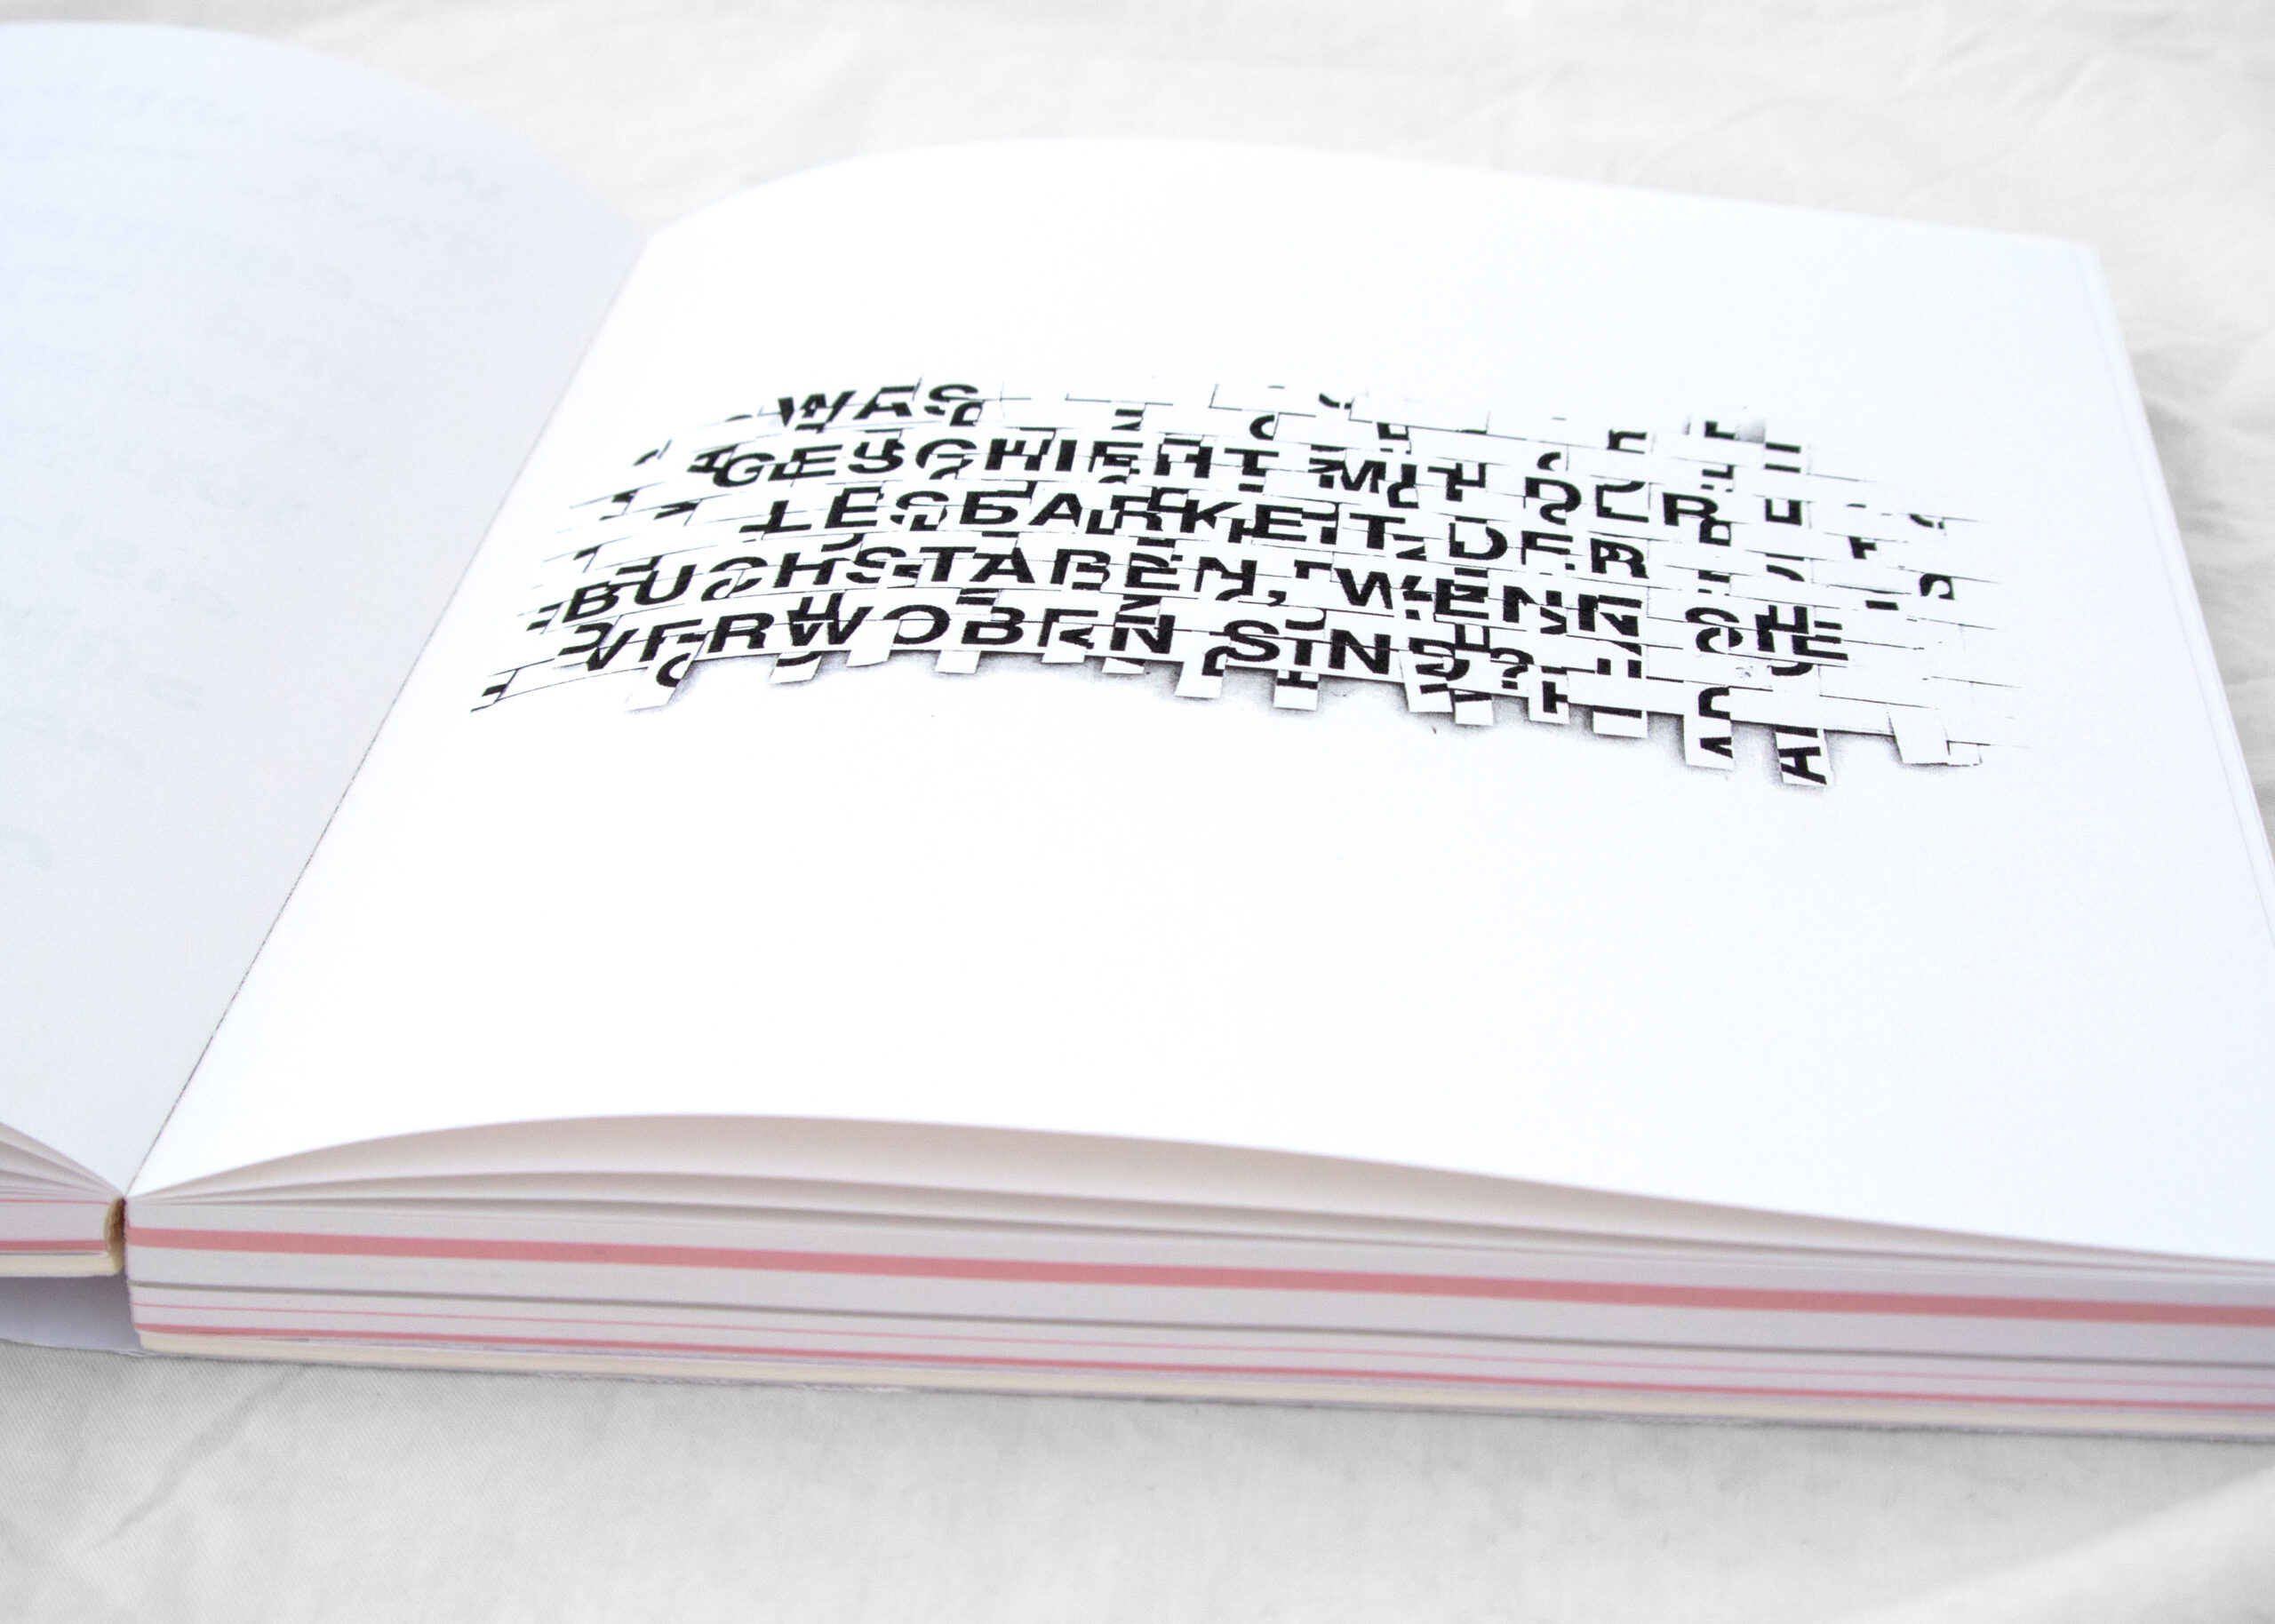 WAS
GESCHIEHT MIT DER
LESBARKEIT DER
BUCHSTABEN, WENN SIE
VERWOBEN SIND?